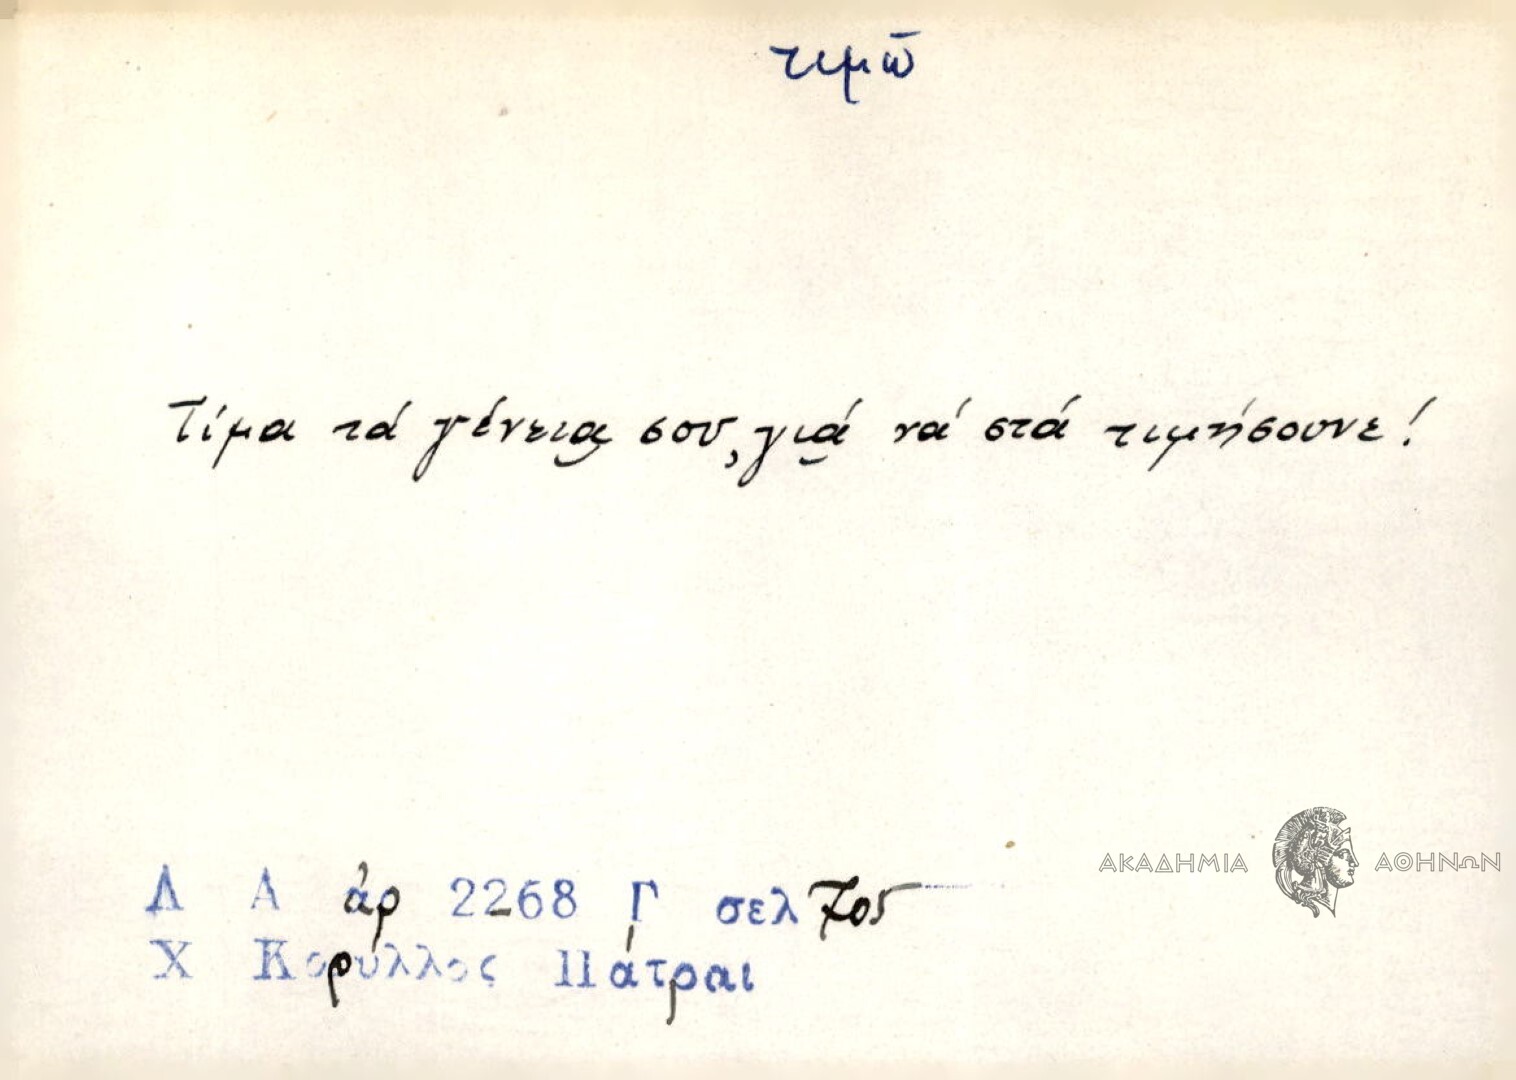 τιμῶ
Τίμα τά γένεια σου, γιά νά στά τιμήσουνε!
ΑΚΑΔΗΜΙΑ ΑΘΗΝΩΝ
Λ Α ἀρ 2268 Γ σελ 705
Χ Κορύλλος Πάτραι